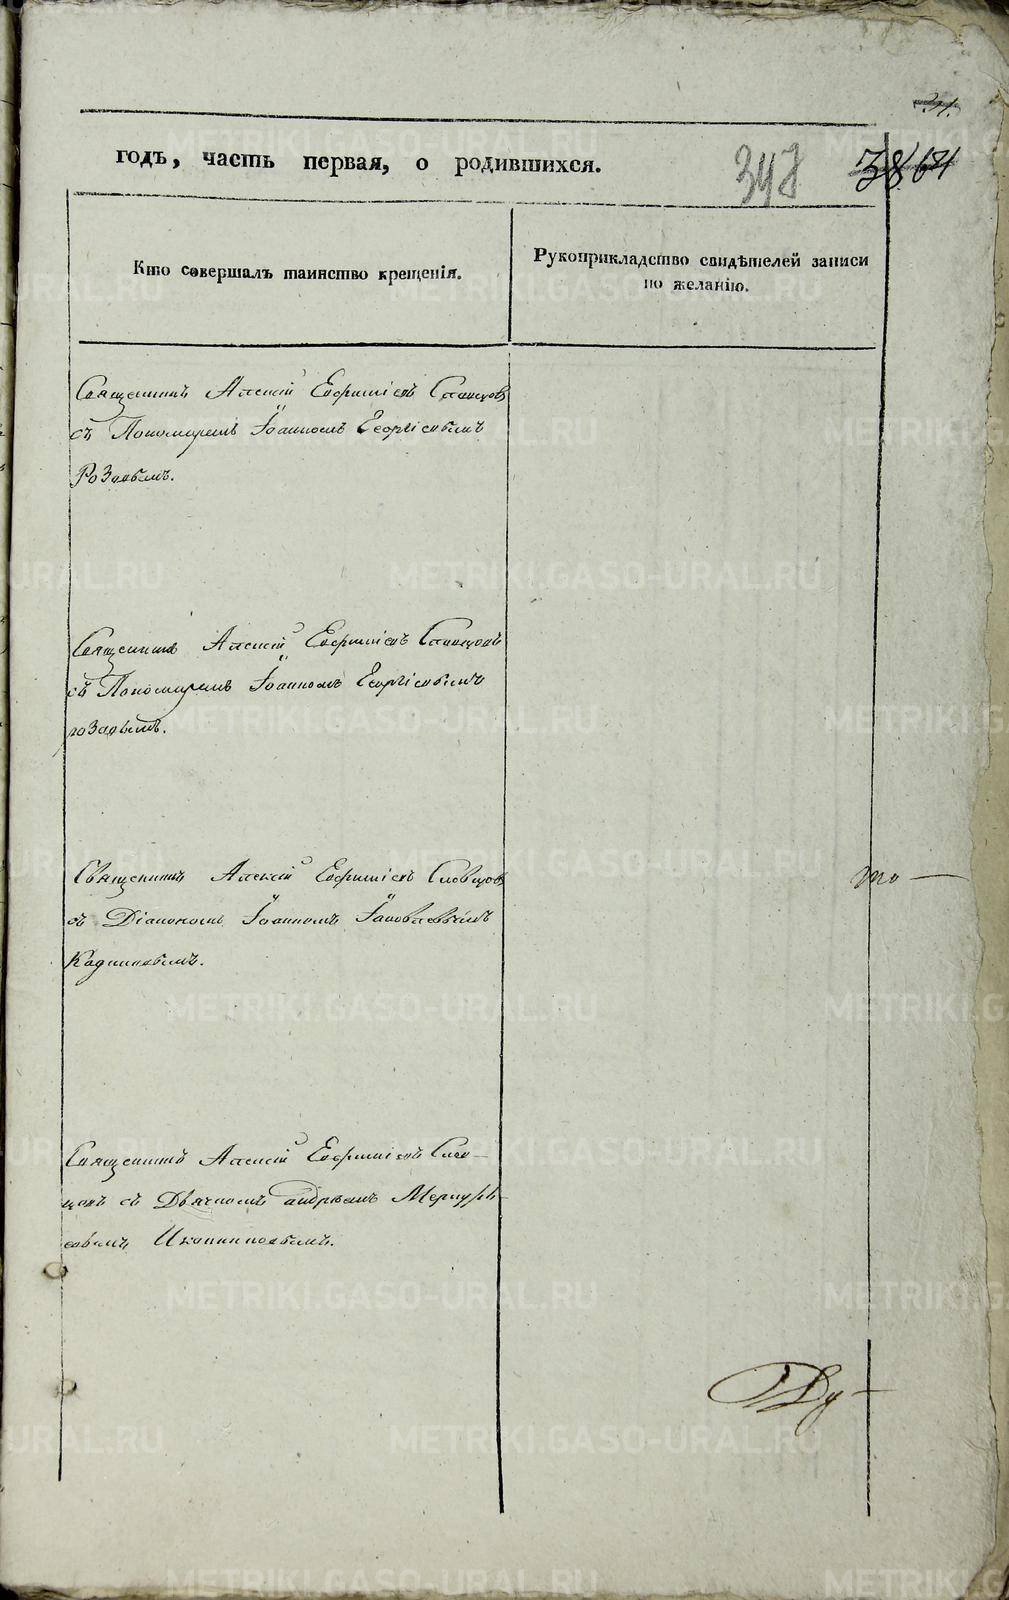 годъ, часть первая, о родившихся.
348
Кто совершалъ таинство крещенія.
Рукоприкладство свидѣтелей записи
по желанію.
Священникъ Алексій Евфиміевъ Словцовъ
съ Пономаремъ Іоанномъ Георгіевымъ
Розовымъ.
Священникъ Алексій Евфиміевъ Словцовъ
съ Пономаремъ Іоанномъ Георгіевымъ
розовымъ.
Священникъ Алексій Евфиміевъ Словцовъ
съ Діакономъ Іоанномъ Іаковлевымъ
Кадниковымъ.
Священникъ Алексій Евфиміевъ Слов-
цовъ съ Дьячкомъ Андреемъ Меркурь-
евымъ Иконниковымъ.
METRIKI.GASO-URAL.RU